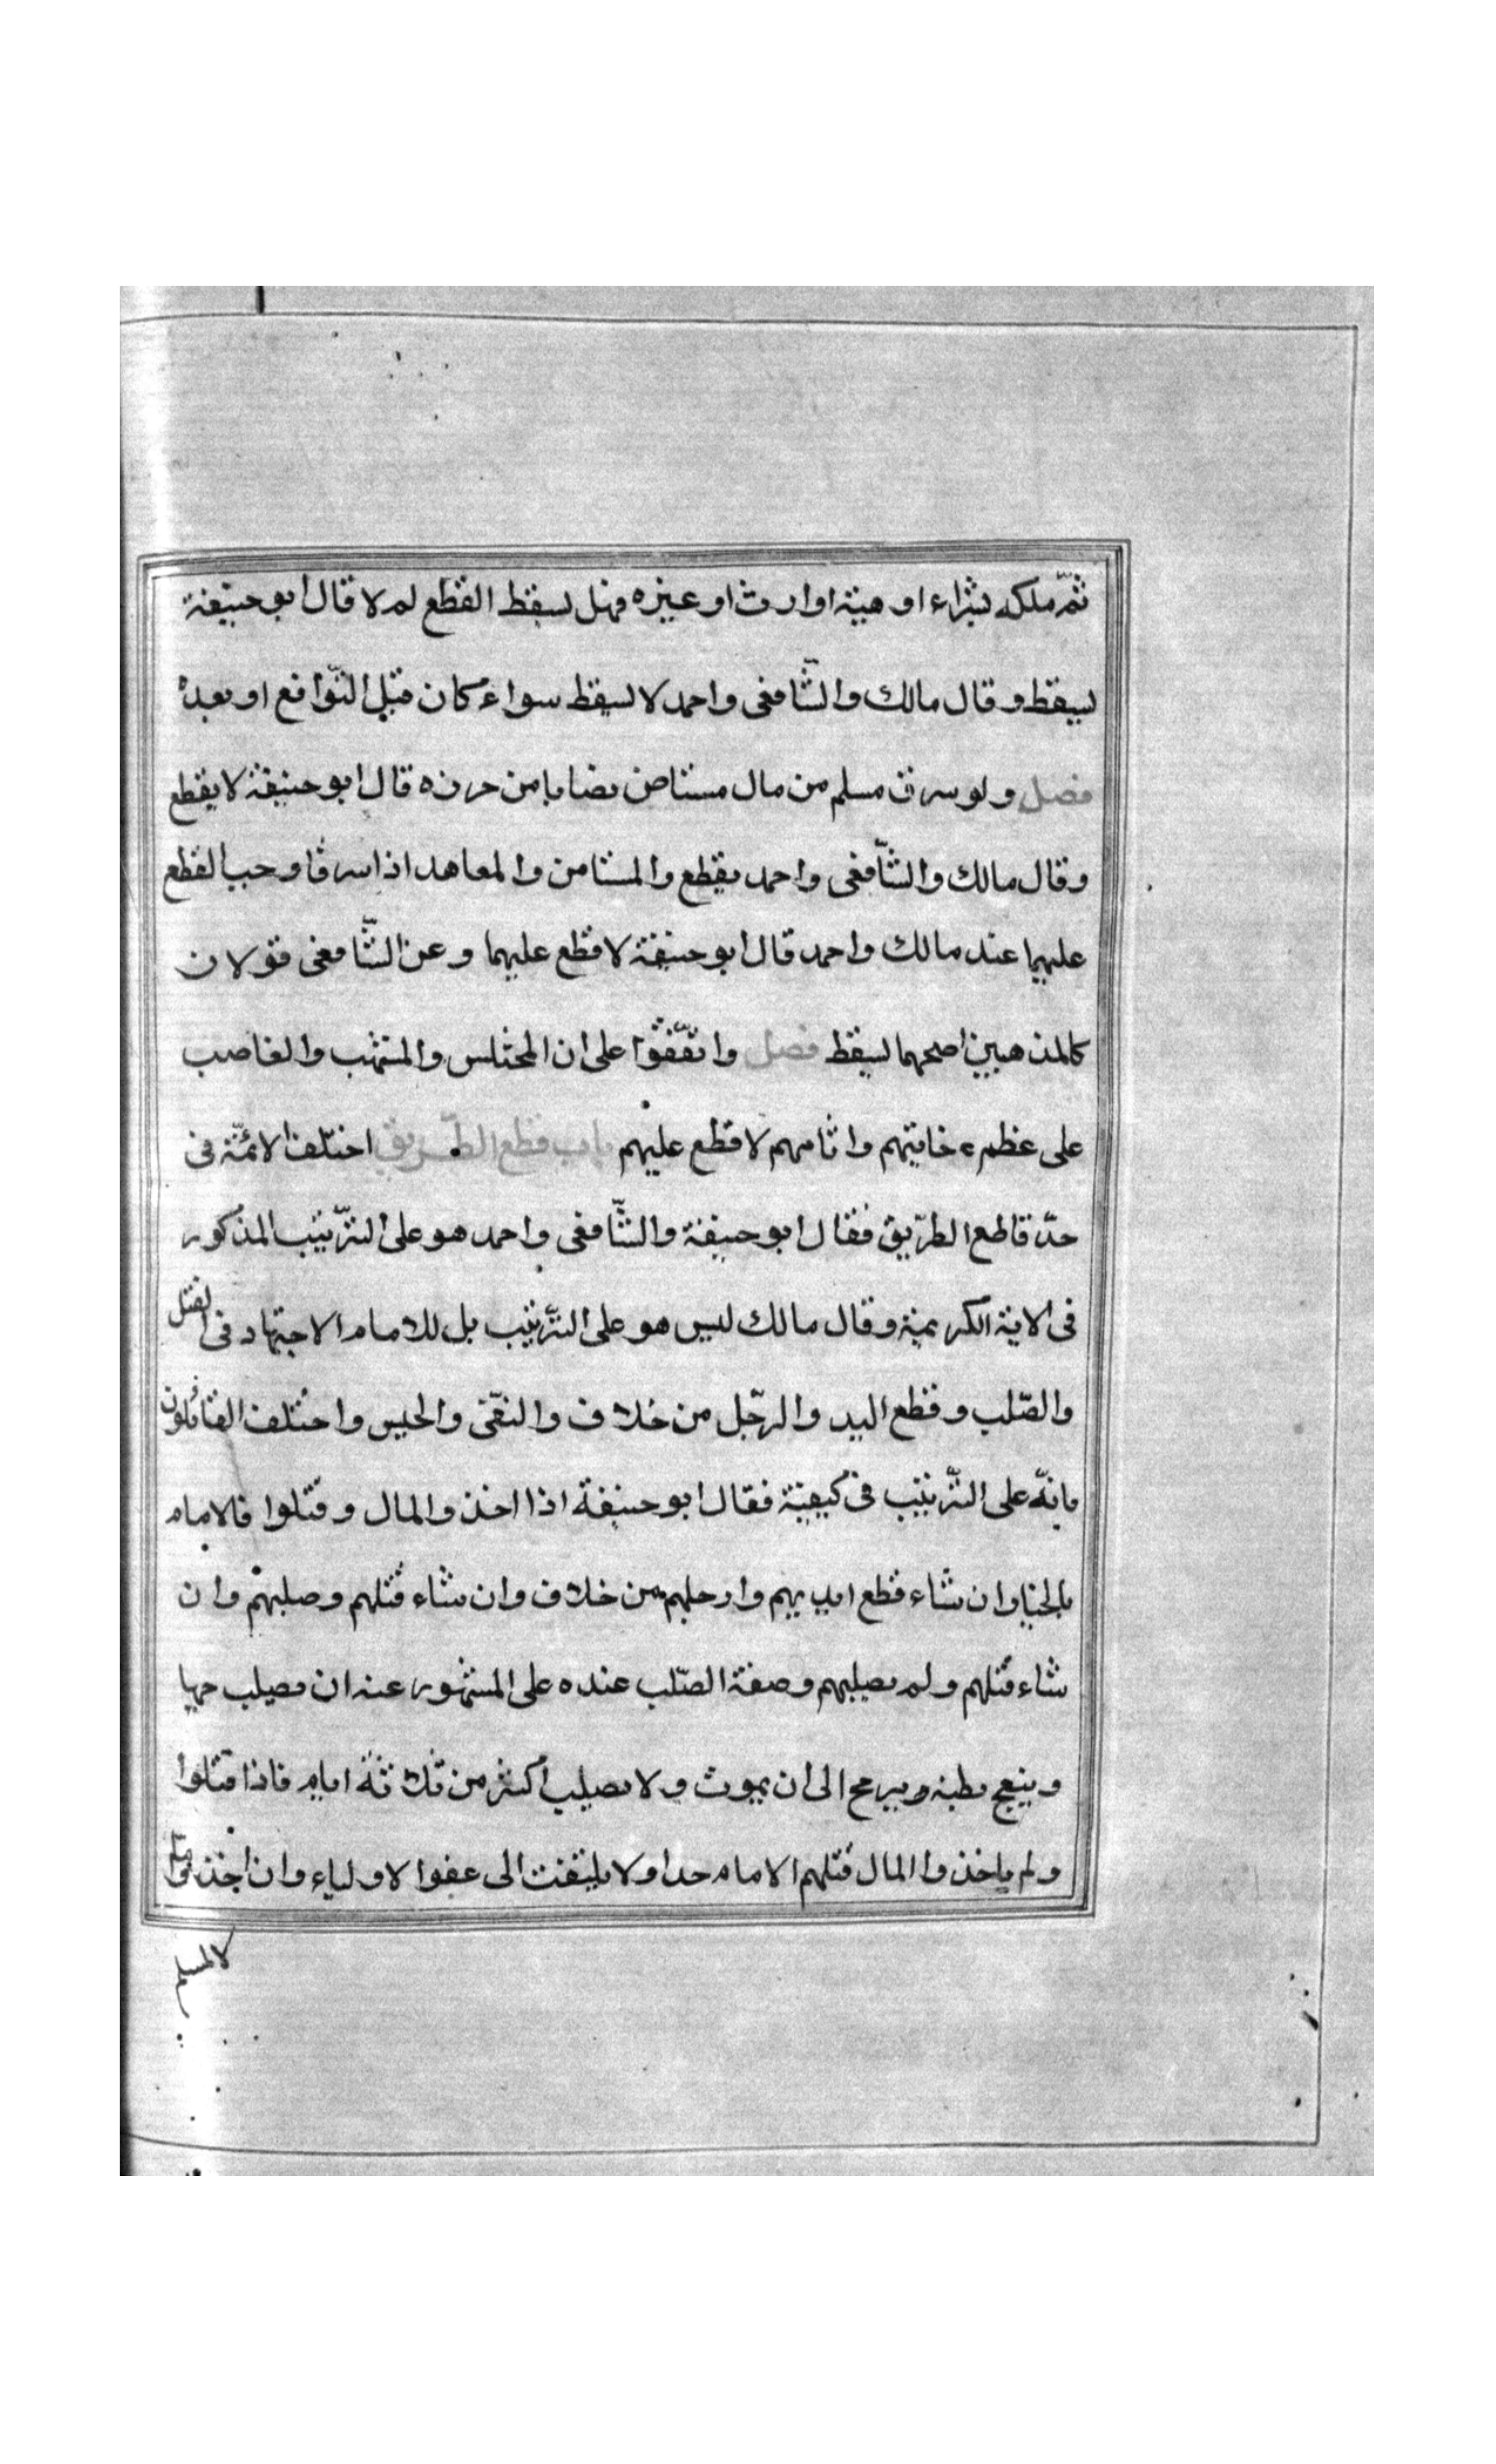 ثمّ ملكه بشراء او هبة او ارث او غيره فهل يسقط القطع لم لا قال ابو حنيفة
يسقط وقال مالك والشّافعى واحمد لا يسقط سواء كان قبل التّوافع او بعده
فصل ولو سرق مسلم من مال مستاض نصابا من حرزه قال ابو حنيفة لا يقطع
وقال مالك والشّافعى واحمد يقطع والمستامن والمعاهد اذا سرقا وجب القطع
عليهما عند مالك واحمد قال ابو حنيفة لا قطع عليهما وعن الشّافعى قولان
كالمذهبين اصحهما يسقط فصل واتّفقوا على ان المختلس والمنتهب والغاصب
على عظم خايتهم واثامهم لا قطع عليهم باب قطع الطّريق اختلف الائمّة فى
حدّ قاطع الطرّيق فقال ابو حنيفة والشّافعى واحمد هو على الترّتيب المذكور
فى الاية الكريمة وقال مالك ليس هو على الترّتيب بل للامام الاجتهاد فى القتل
والصّلب وقطع اليد والرجّل من خلاف والنفّى والحبس واختلف القائلون
بانّه على الترّتيب فى كيفيّة فقال ابو حنيفة اذا اخذوا المال وقتلوا فالامام
بالخيار ان شاء قطع ايديهم وارجلهم من خلاف وان شاء قتلهم وصلبهم وان
شاء قتلهم ولم يصلبهم وصفة الصّلب عنده على المشهور عنه ان يصلب حيا
وينعج بطنه وبرمح الى ان يموت ولا يصلب اكثر من ثلاثة ايام فاذا قتلوا
ولم ياخذوا المال قتلهم الامام حدا ولا يلتفت الى عفوا لاولياء وان اخذوا
لالمسلم